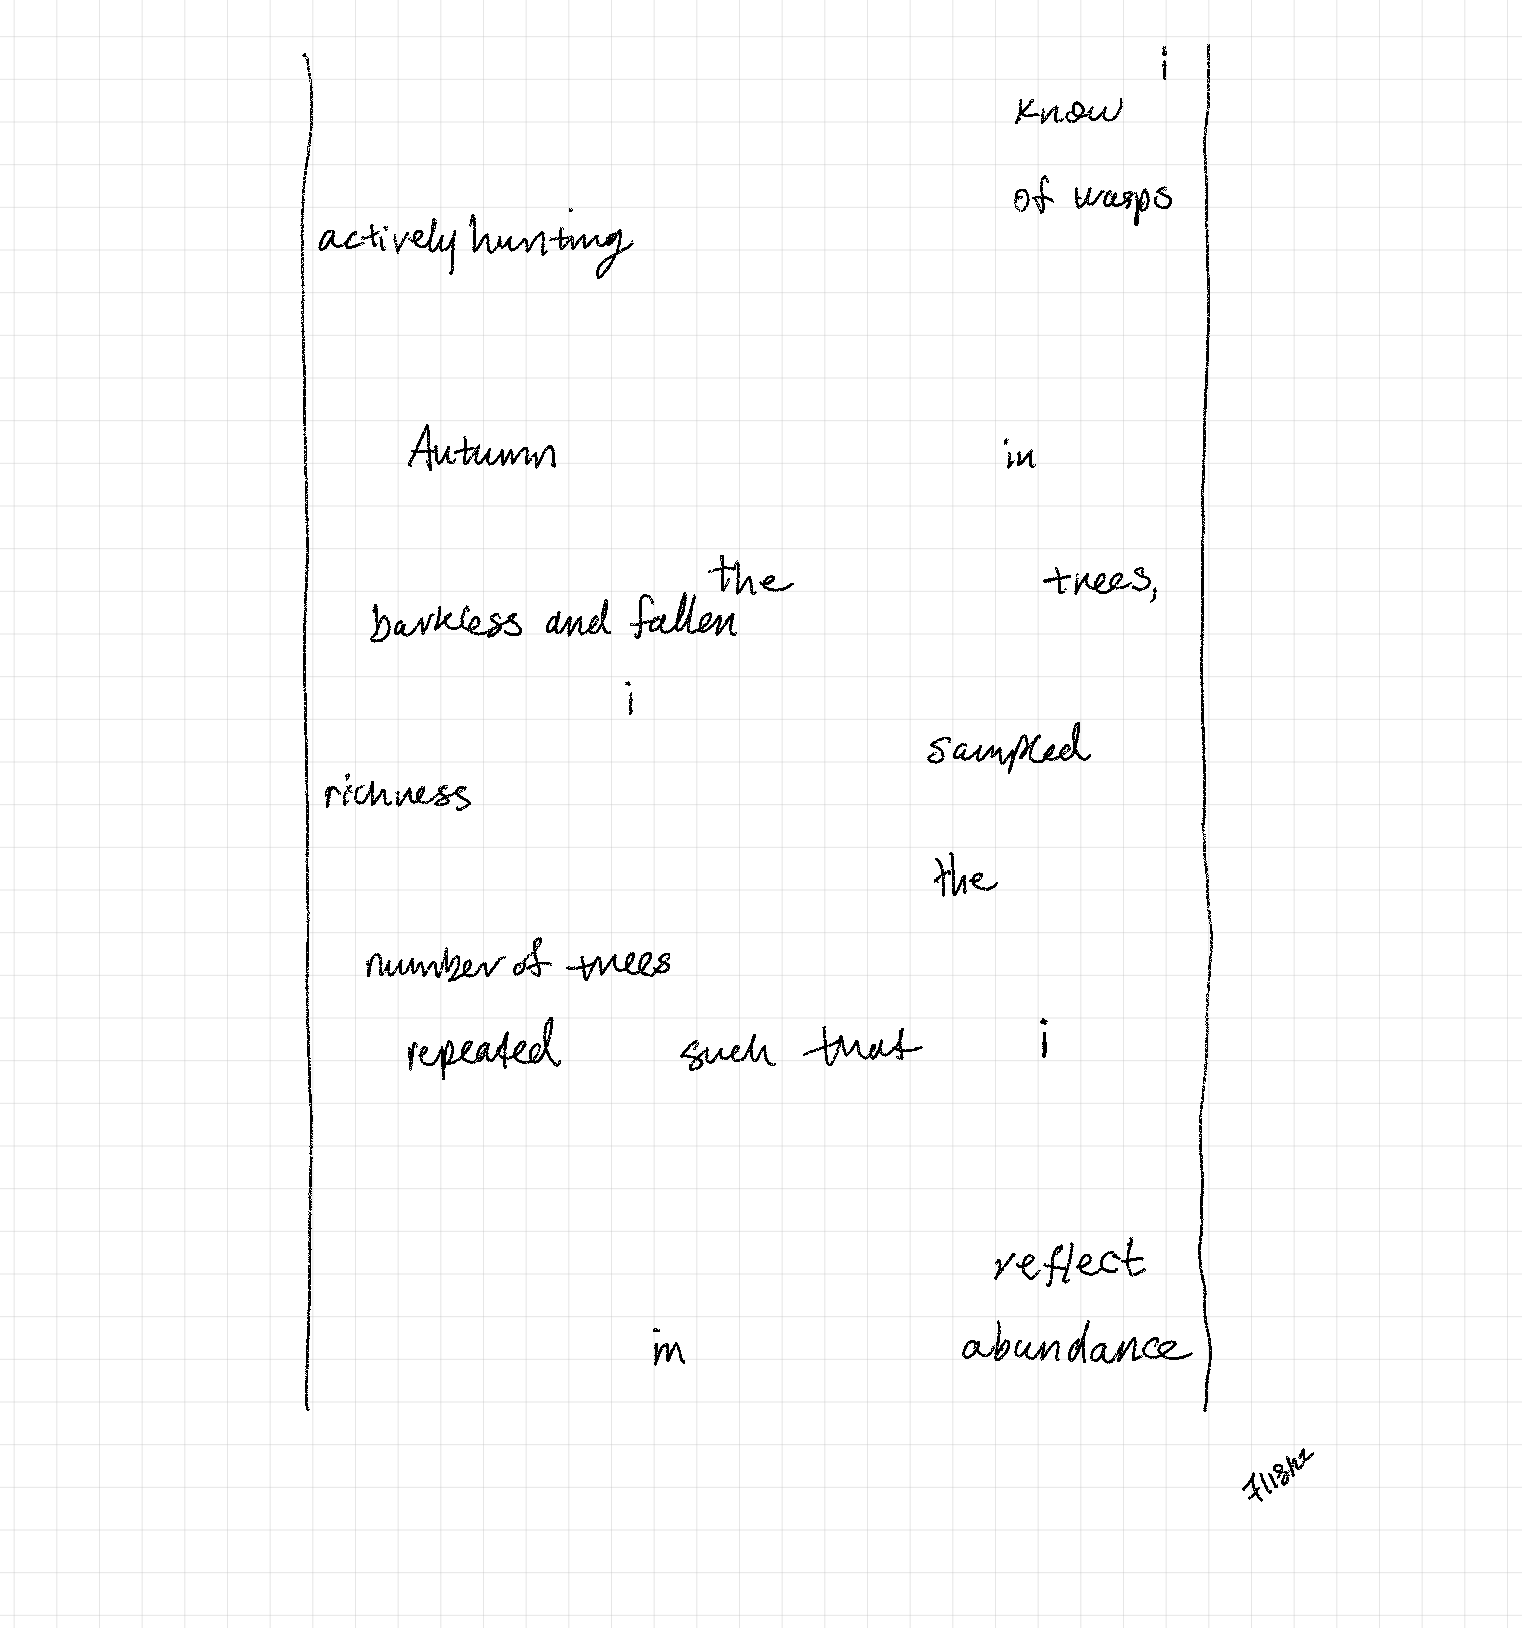 i
know
of wasps
actively hunting
Autumn in
the trees,
barkless and fallen
i
sampled
richness
the
number of trees
repeated such that i
reflect
in abundance